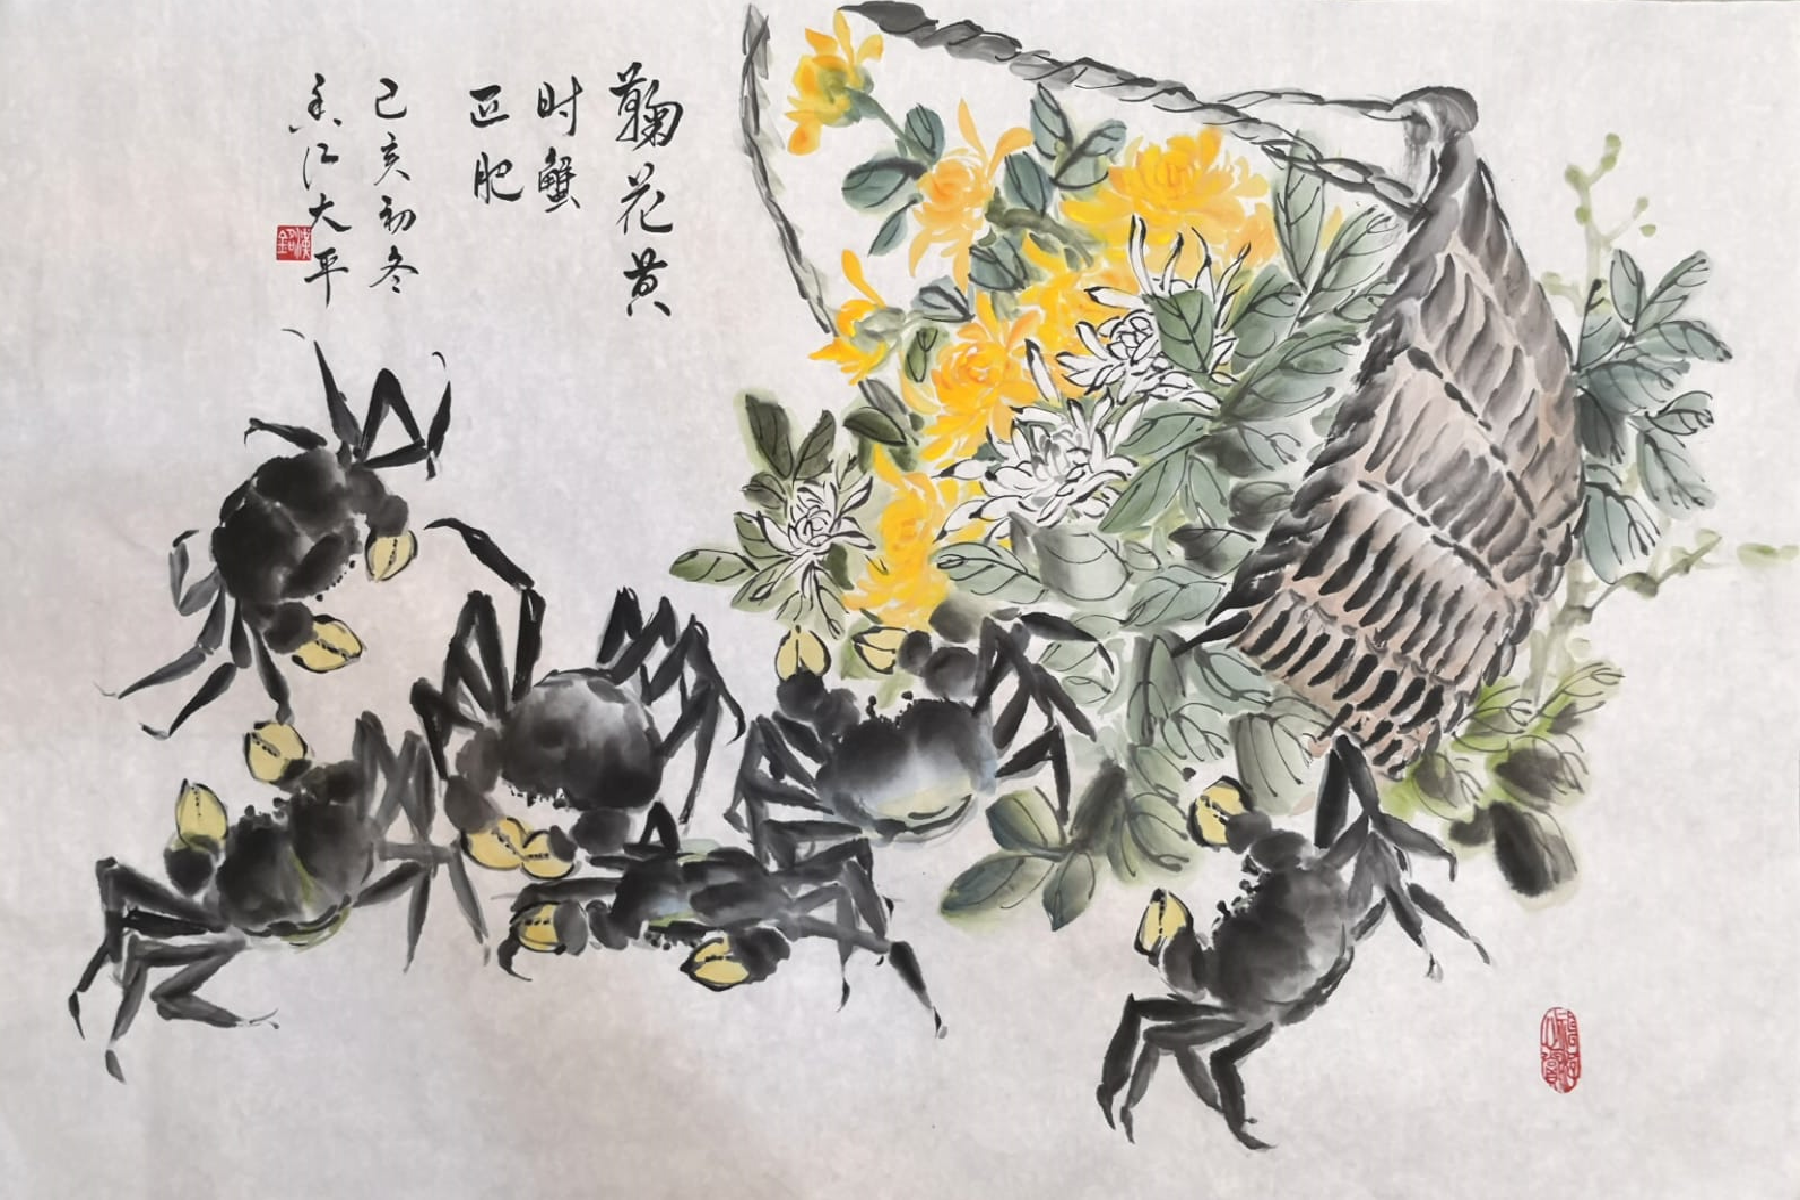 鞠花黄
时蟹
正肥
己亥初冬
大平